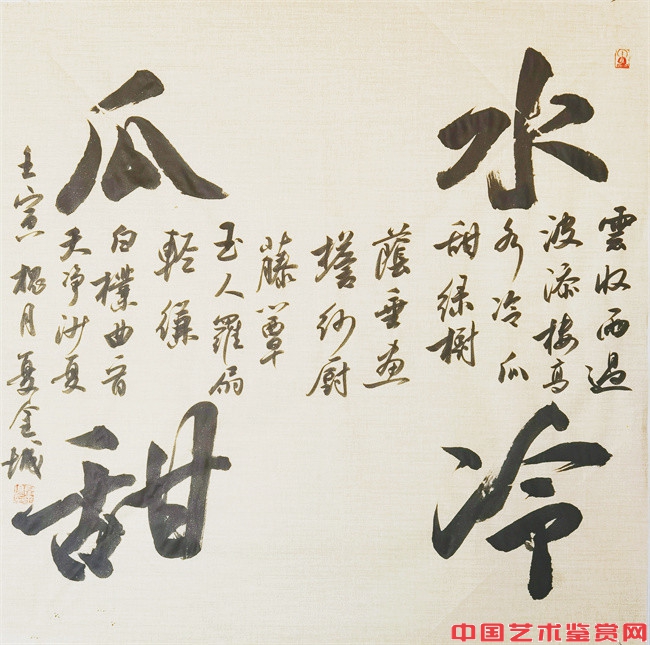 水冷
瓜甜
雲收雨過
波添楼高
水冷瓜
甜绿樹
蔭垂画
檐纱厨
藤簟
玉人羅扇
輕縑
白樸曲首
天净沙夏
壬寅榴月夏金城
中国艺术鉴赏网